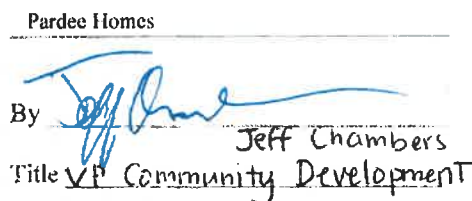 Pardee Homes
By Jeff Chambers
Title VP Community Development